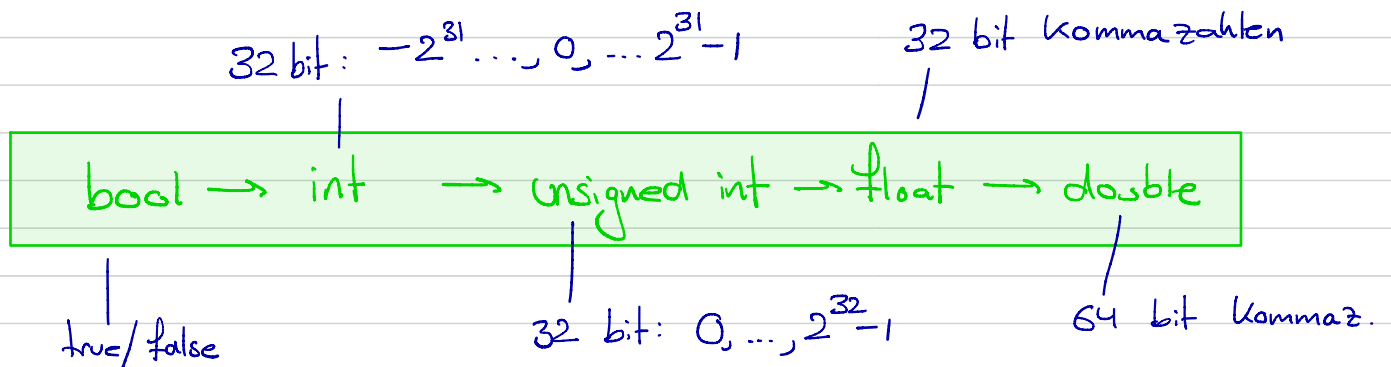 32 bit: -2^31 ..., 0, ... 2^31-1
32 bit Kommazahlen
bool → int → unsigned int → float → double
true/false
32 bit: 0, ..., 2^32-1
64 bit Kommaz.